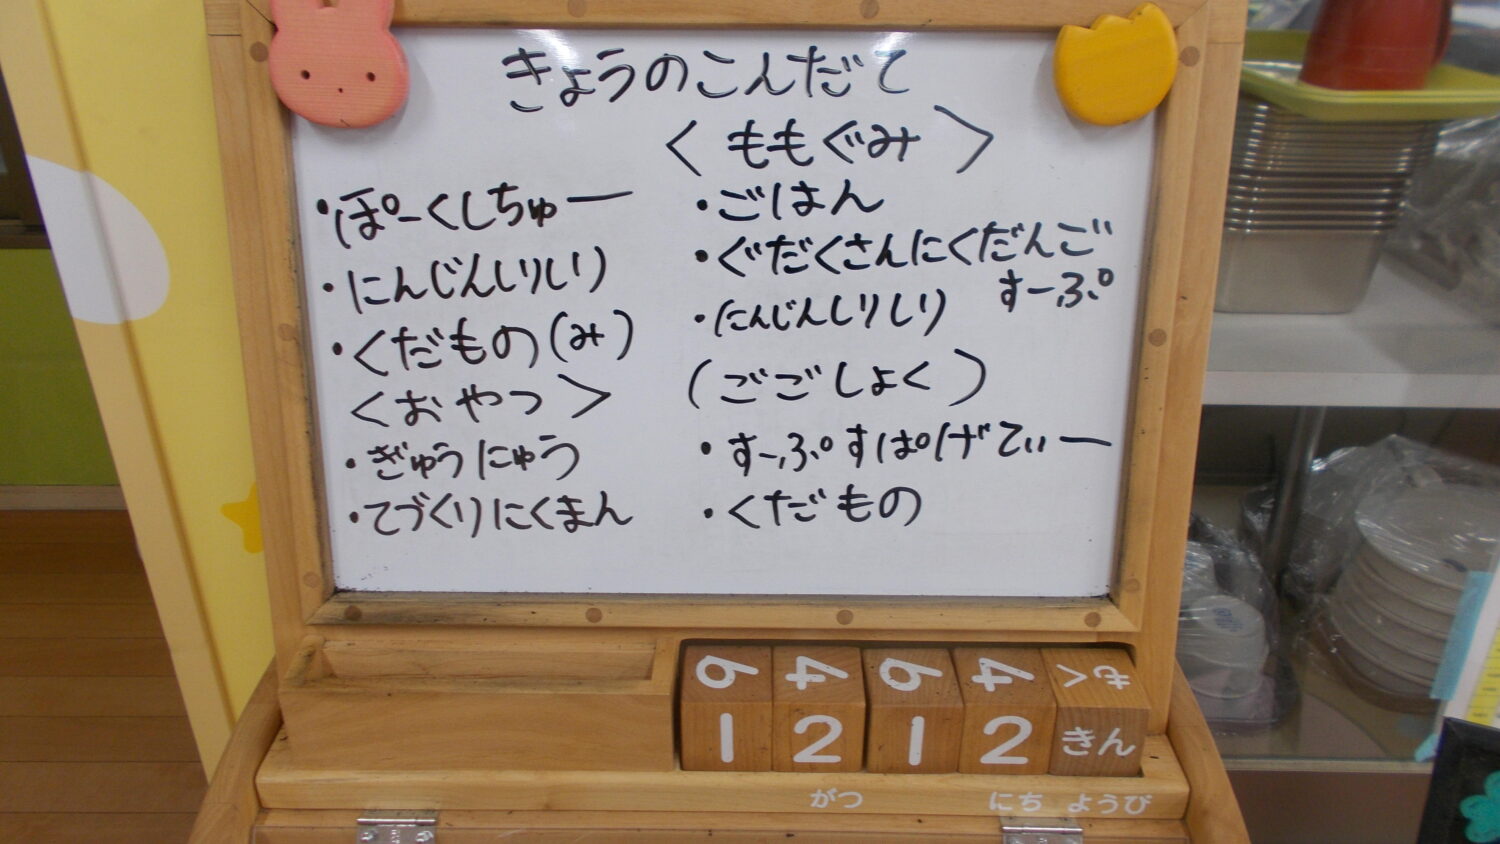 きょうのこんだて
・ぽーくしちゅー
・にんじんしりしり
・くだもの(み)
<おやつ>
・ぎゅうにゅう
・てづくりにくまん
<ももぐみ>
・ごはん
・ぐだくさんにくだんご
すーぷ
・にんじんしりしり
(ごごしょく)
・すーぷすぱげてぃー
・くだもの
6 4 6 4 もく
1 2 1 2 きん
がつ にち ようび